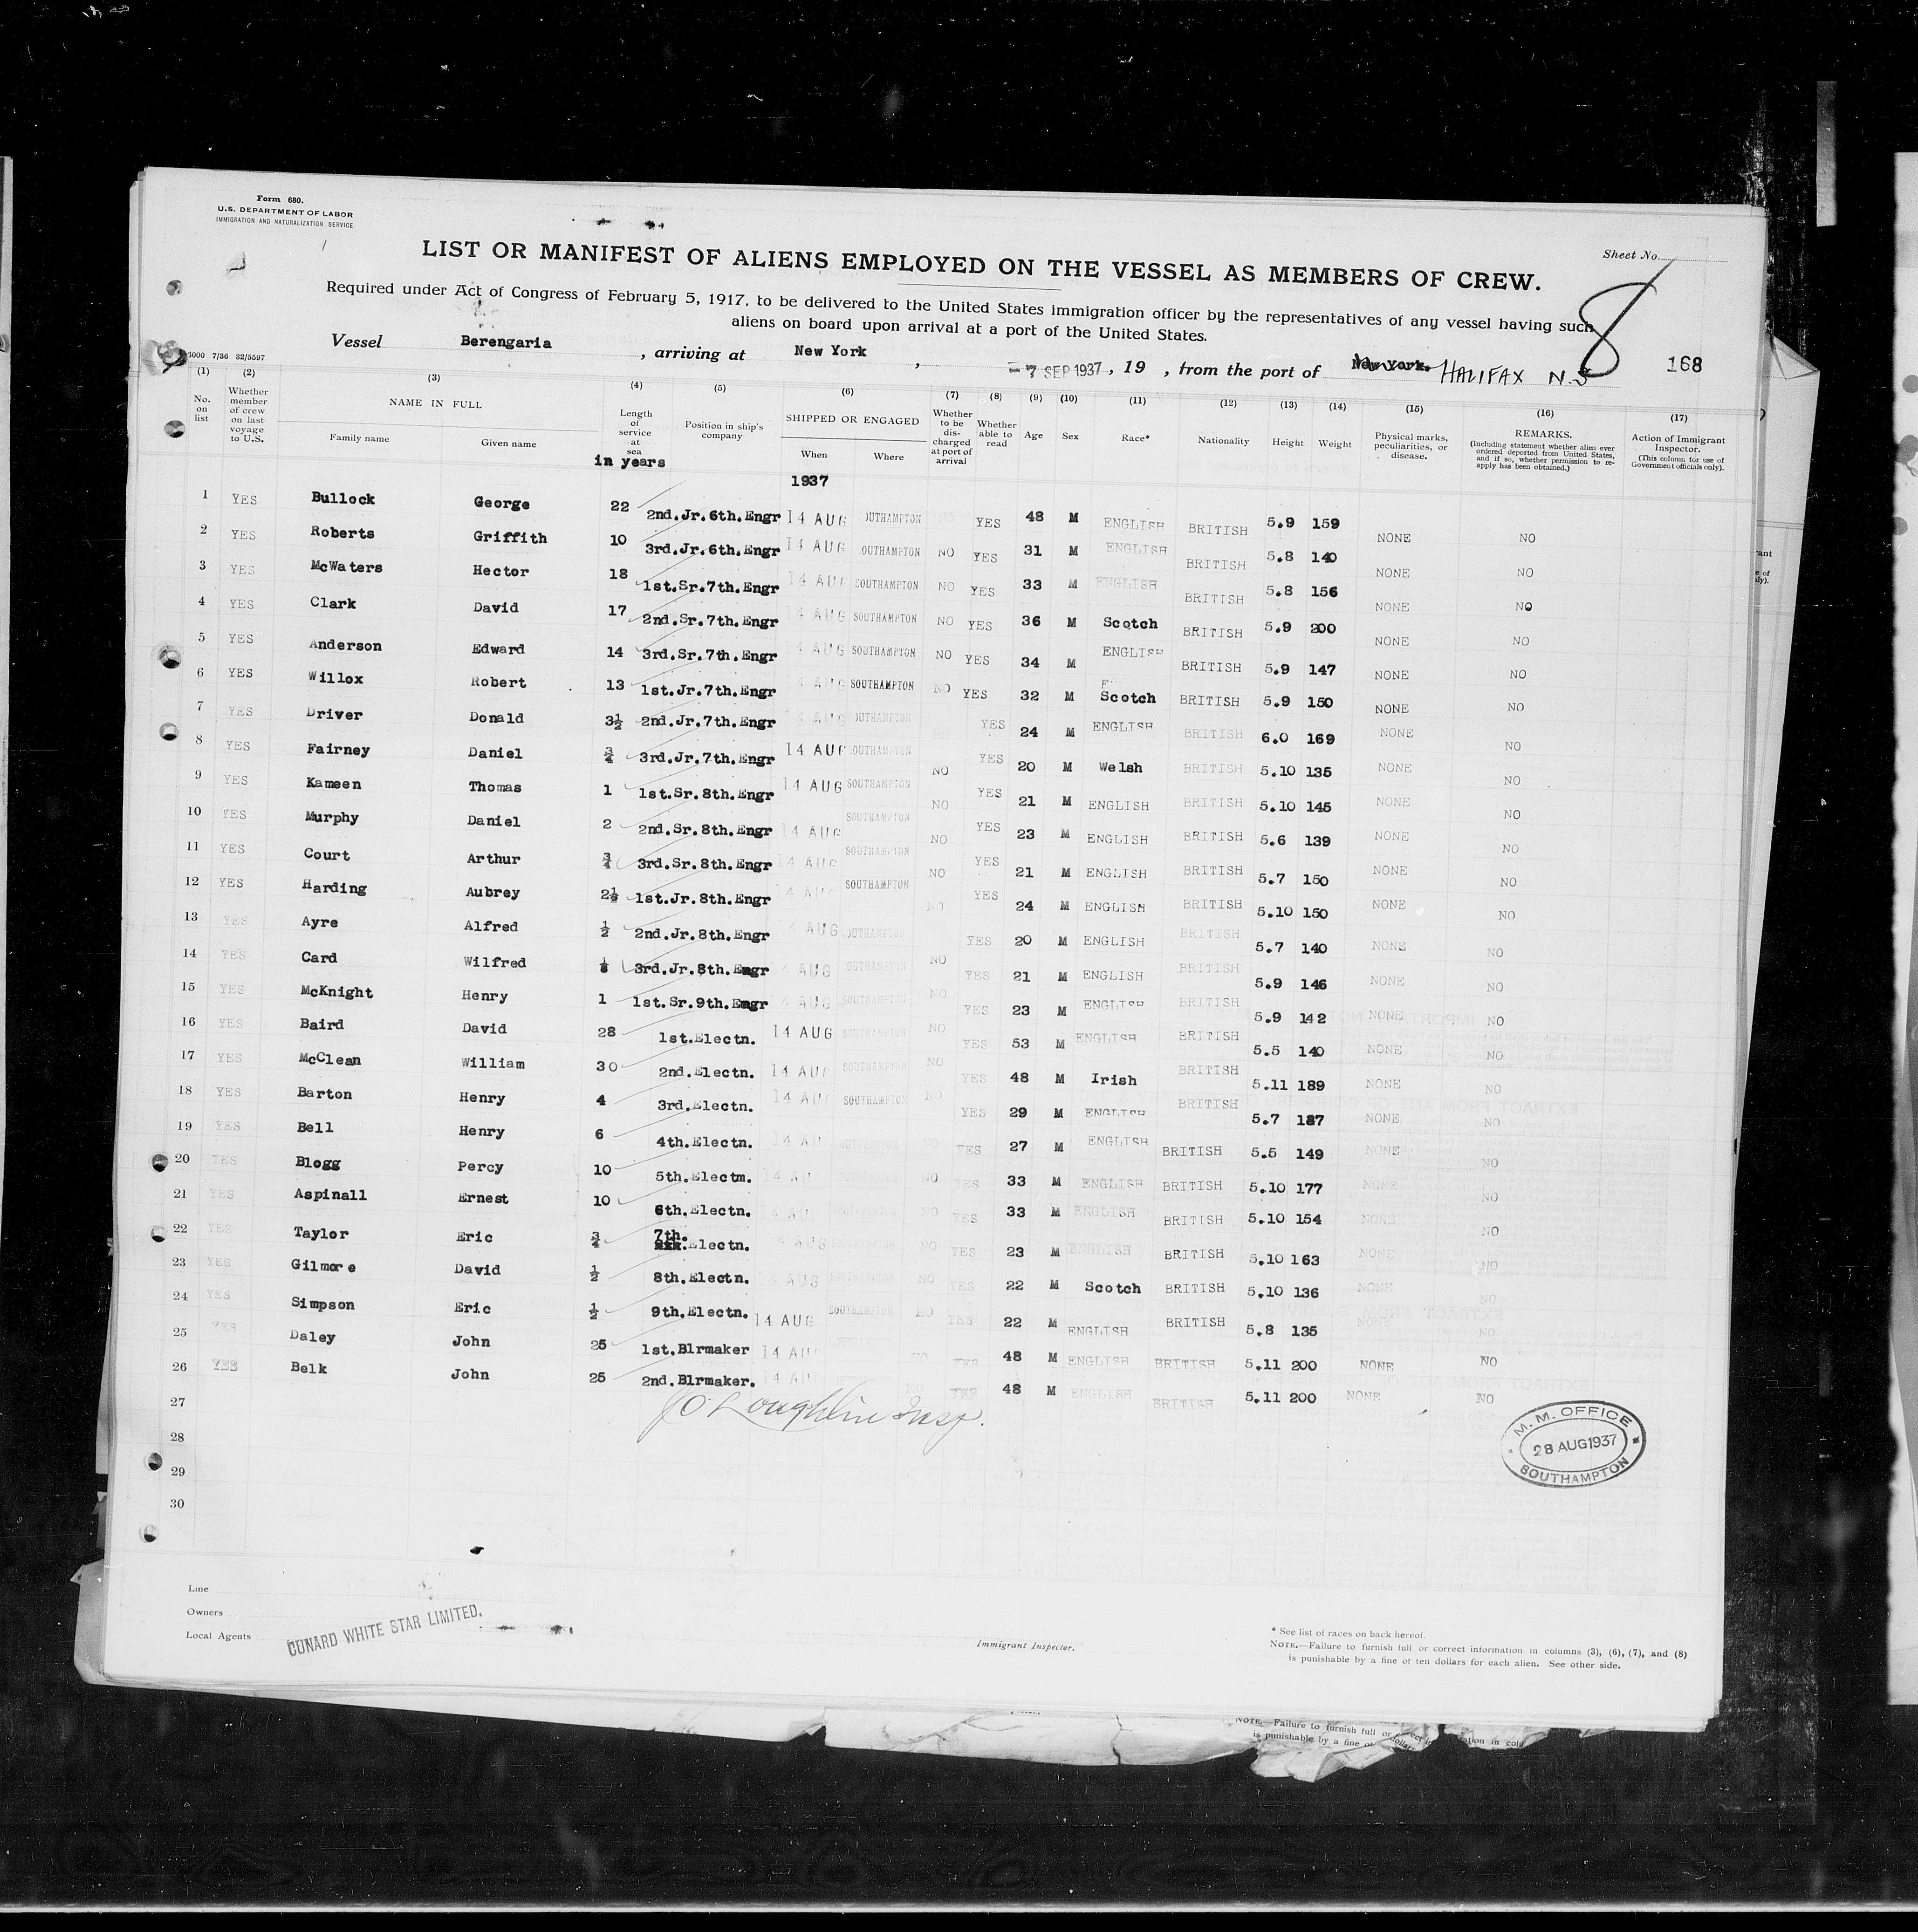 Form 680.
U.S. DEPARTMENT OF LABOR
IMMIGRATION AND NATURALIZATION SERVICE
LIST OR MANIFEST OF ALIENS EMPLOYED ON THE VESSEL AS MEMBERS OF CREW.
Sheet No. 8
Required under Act of Congress of February 5, 1917, to be delivered to the United States immigration officer by the representatives of any vessel having such
aliens on board upon arrival at a port of the United States.
Vessel Berengaria, arriving at New York, 7 SEP 1937, 19 , from the port of New York. HALIFAX N.S 168
5000 7/36 32/5597
(1) (2) (3) (4) (5) (6) (7) (8) (9) (10) (11) (12) (13) (14) (15) (16) (17)
No. on list Whether member of crew on last voyage to U.S. NAME IN FULL Family name Given name Length of service at sea in years Position in ship's company SHIPPED OR ENGAGED When Where Whether to be discharged at port of arrival Whether able to read Age Sex Race* Nationality Height Weight Physical marks, peculiarities, or disease. REMARKS. (Including statement whether alien ever ordered deported from United States, and if so, whether permission to reapply has been obtained.) Action of Immigrant Inspector. (This column for use of Government officials only).
1937
1 YES Bullock George 22 2nd.Jr.6th.Engr 14 AUG OUTHAMPTON YES 48 M ENGLISH BRITISH 5.9 159 NONE NO
2 YES Roberts Griffith 10 3rd.Jr.6th.Engr 14 AUG OUTHAMPTON NO YES 31 M ENGLISH BRITISH 5.8 140 NONE NO
3 YES McWaters Hector 18 1st.Sr.7th.Engr 14 AUG SOUTHAMPTON NO YES 33 M ENGLISH BRITISH 5.8 156 NONE NO
4 YES Clark David 17 2nd.Sr.7th.Engr 14 AUG SOUTHAMPTON NO YES 36 M Scotch BRITISH 5.9 200 NONE NO
5 YES Anderson Edward 14 3rd.Sr.7th.Engr 14 AUG SOUTHAMPTON NO YES 34 M ENGLISH BRITISH 5.9 147 NONE NO
6 YES Willox Robert 13 1st.Jr.7th.Engr 4 AUG SOUTHAMPTON NO YES 32 M Scotch BRITISH 5.9 150 NONE NO
7 YES Driver Donald 3½ 2nd.Jr.7th.Engr 4 AUG OUTHAMPTON YES 24 M ENGLISH BRITISH 6.0 169 NONE NO
8 YES Fairney Daniel ¾ 3rd.Jr.7th.Engr 14 AUG OUTHAMPTON NO YES 20 M Welsh BRITISH 5.10 135 NONE NO
9 YES Kameen Thomas 1 1st.Sr.8th.Engr 14 AUG SOUTHAMPTON NO YES 21 M ENGLISH BRITISH 5.10 145 NONE NO
10 YES Murphy Daniel 2 2nd.Sr.8th.Engr 14 AUG SOUTHAMPTON NO YES 23 M ENGLISH BRITISH 5.6 139 NONE NO
11 YES Court Arthur ¾ 3rd.Sr.8th.Engr 4 AUG SOUTHAMPTON NO YES 21 M ENGLISH BRITISH 5.7 150 NONE NO
12 YES Harding Aubrey 1st.Jr.8th.Engr 14 AUG SOUTHAMPTON NO YES 24 M ENGLISH BRITISH 5.10 150 NONE NO
13 YES Ayre Alfred ½ 2nd.Jr.8th.Engr 4 AUG OUTHAMPTON NO YES 20 M ENGLISH BRITISH 5.7 140 NONE NO
14 YES Card Wilfred 3rd.Jr.8th.Engr 4 AUG SOUTHAMPTON NO YES 21 M ENGLISH BRITISH 5.9 146 NONE NO
15 YES McKnight Henry 1 1st.Sr.9th.Engr 4 AUG SOUTHAMPTON NO YES 23 M ENGLISH BRITISH 5.9 142 NONE NO
16 YES Baird David 28 1st.Electn. 14 AUG SOUTHAMPTON NO YES 53 M ENGLISH BRITISH 5.5 140 NONE NO
17 YES McClean William 30 2nd.Electn. 14 AUG SOUTHAMPTON NO YES 48 M Irish BRITISH 5.11 189 NONE NO
18 YES Barton Henry 4 3rd.Electn. 14 AUG SOUTHAMPTON NO YES 29 M ENGLISH BRITISH 5.7 187 NONE NO
19 YES Bell Henry 6 4th.Electn. 14 AU OUTHAMPTON NO YES 27 M ENGLISH BRITISH 5.5 149 NONE NO
20 YES Blogg Percy 10 5th.Electm. 4 AU SOUTHAMPTON NO YES 33 M ENGLISH BRITISH 5.10 177 NONE NO
21 YES Aspinall Ernest 10 6th.Electn. 4 AUG SOUTHAMPTON NO YES 33 M ENGLISH BRITISH 5.10 154 NONE NO
22 YES Taylor Eric ¾ 7th. Electn. 4 AUG NO YES 23 M ENGLISH BRITISH 5.10 163 NONE NO
23 YES Gilmore David ½ 8th.Electn. 4 AUG SOUTHAMPTON NO YES 22 M Scotch BRITISH 5.10 136 NONE NO
24 YES Simpson Eric ½ 9th.Electn. 14 AUG SOUTHAMPTON NO YES 22 M ENGLISH BRITISH 5.8 135 NONE NO
25 YES Daley John 25 1st.Blrmaker 14 AUG NO YES 48 M ENGLISH BRITISH 5.11 200 NONE NO
26 YES Belk John 25 2nd.Blrmaker. 14 AUG NO YES 48 M ENGLISH BRITISH 5.11 200 NONE NO
27
J O'Loughlin Insp.
28
29
30
M. M. OFFICE
28 AUG 1937
SOUTHAMPTON
Line
Owners
Local Agents
CUNARD WHITE STAR LIMITED.
Immigrant Inspector.
* See list of races on back hereof.
NOTE.—Failure to furnish full or correct information in columns (3), (6), (7), and (8)
is punishable by a fine of ten dollars for each alien. See other side.
NOTE.—Failure to furnish full or
is punishable by a fine